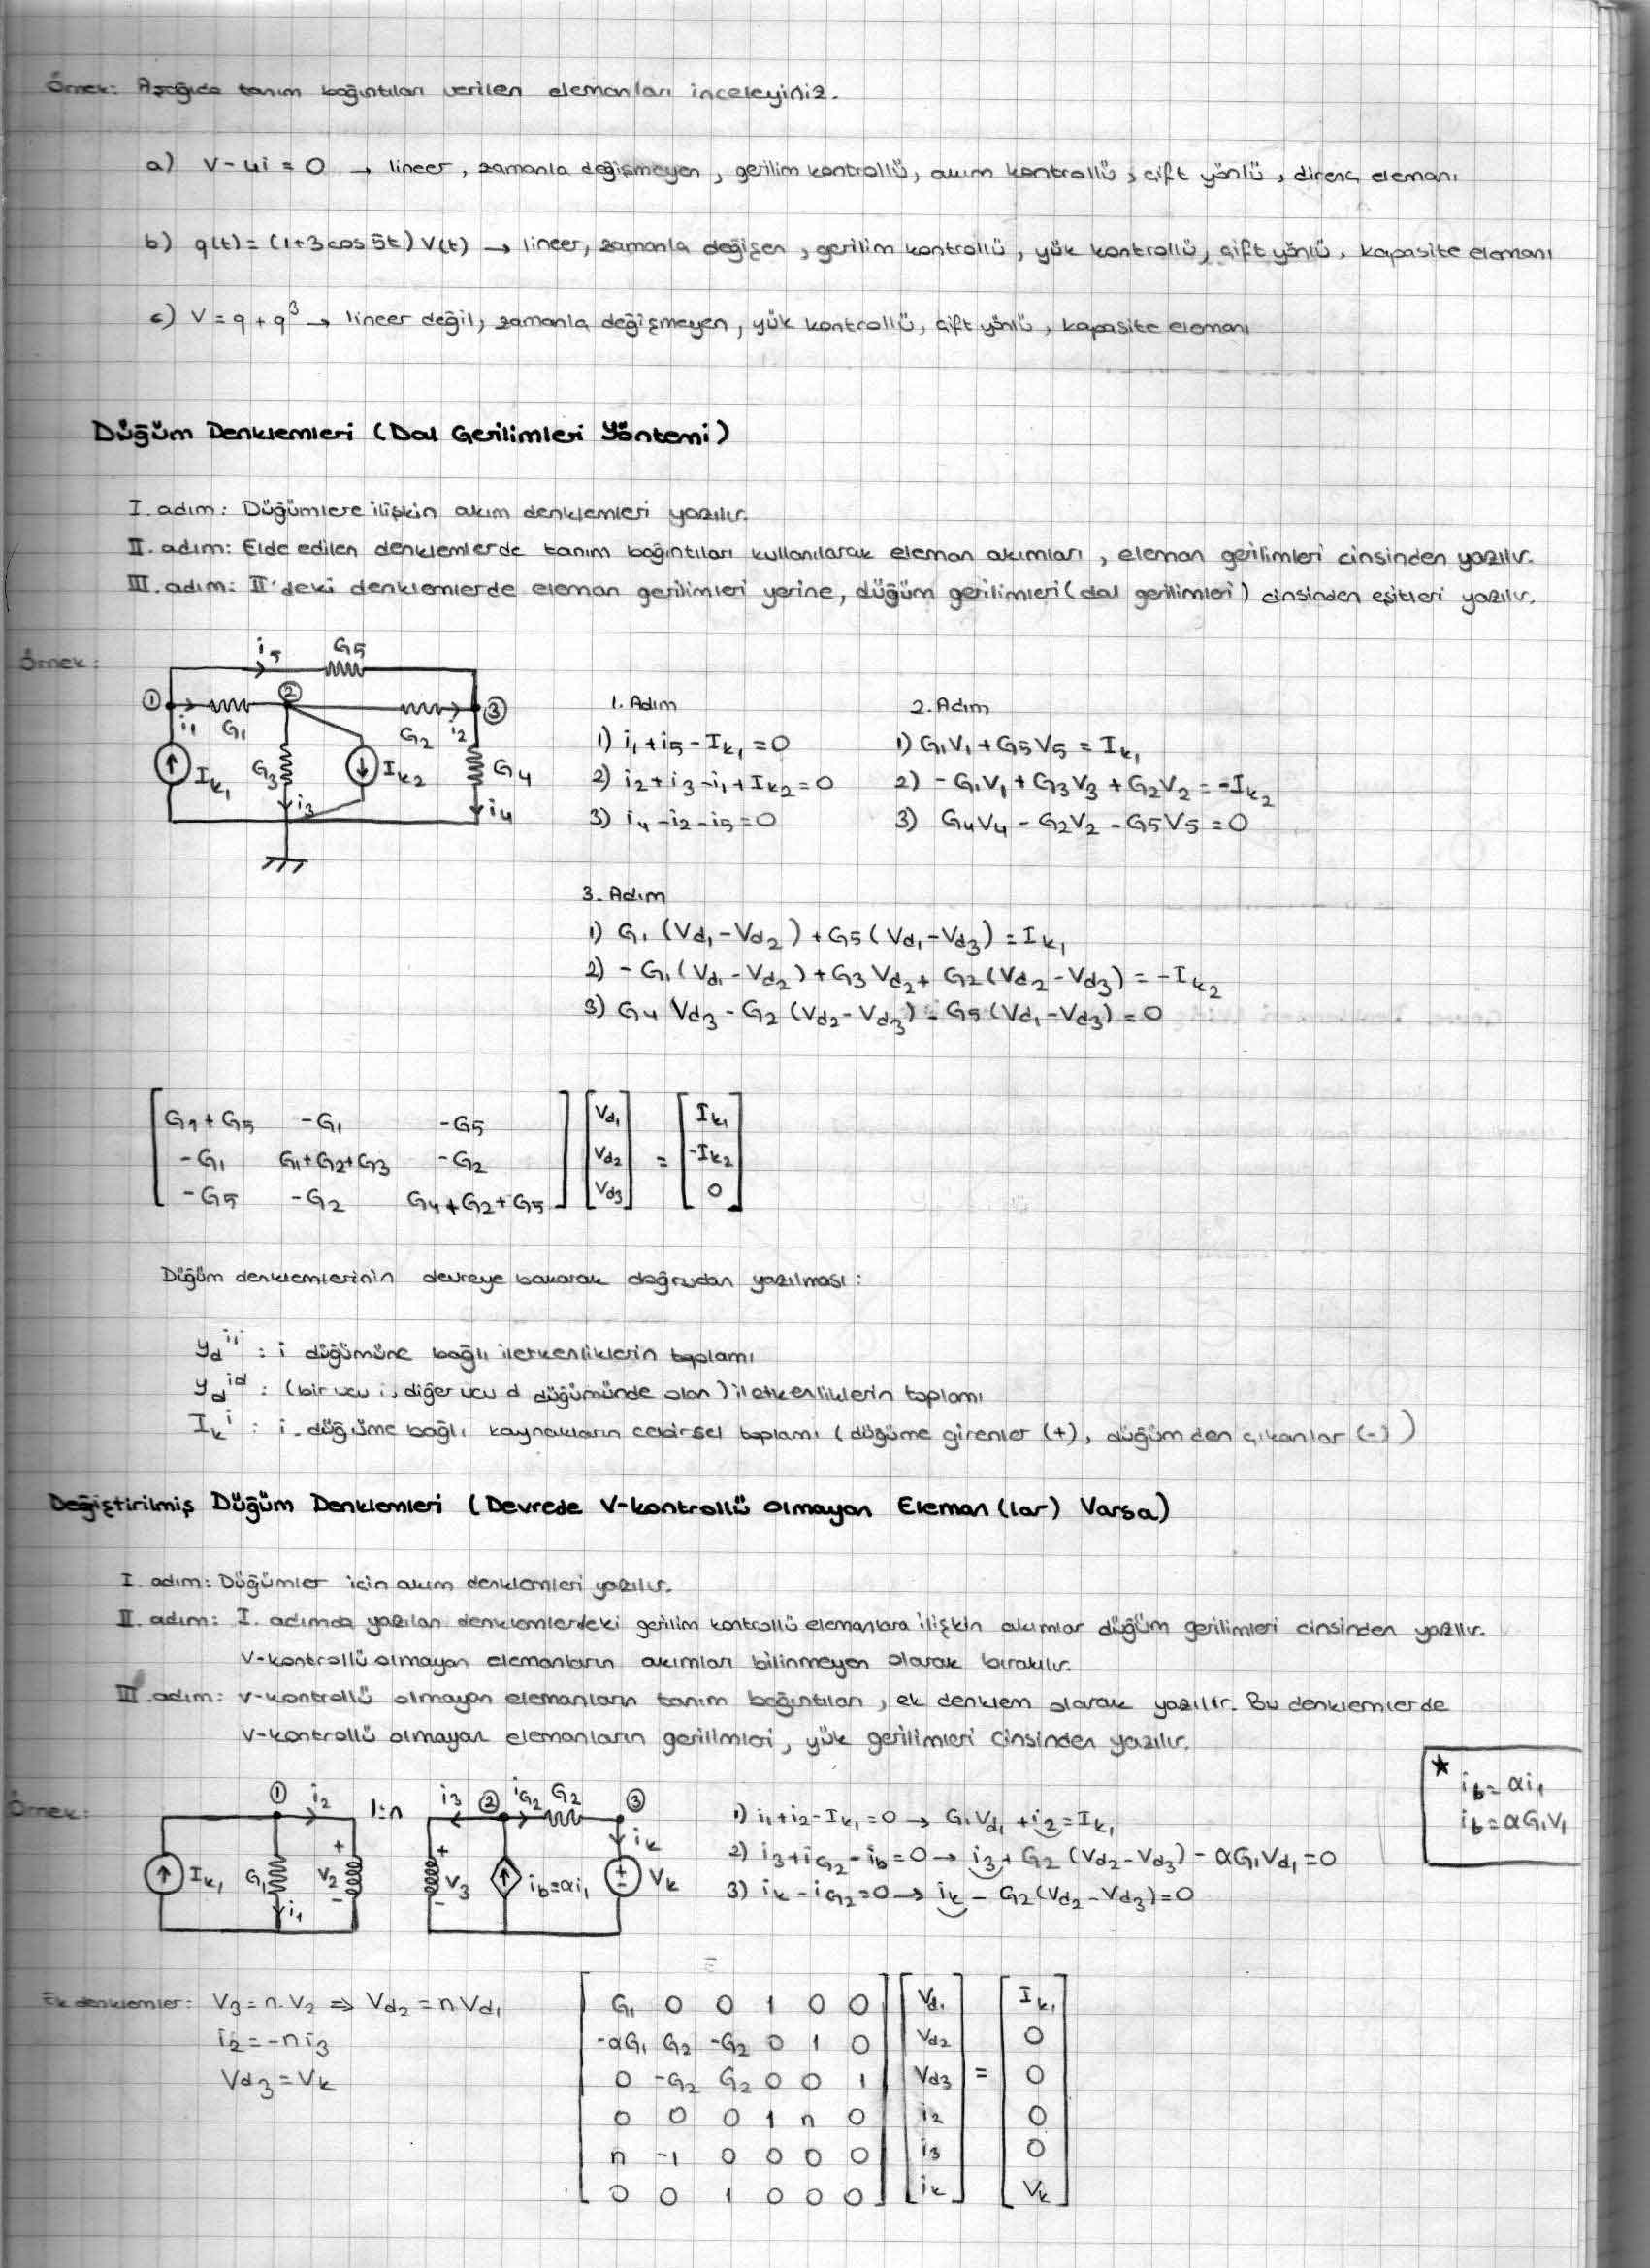 Örnek: Aşağıda tanım bağıntıları verilen elemanları inceleyiniz.
a) V-4i=0 → lineer, zamanla değişmeyen, gerilim kontrollü, akım kontrollü, çift yönlü, direnç elemanı
b) q(t)=(1+3cos5t)V(t) → lineer, zamanla değişen, gerilim kontrollü, yük kontrollü, çift yönlü, kapasite elemanı
c) V=q+q³ → lineer değil, zamanla değişmeyen, yük kontrollü, çift yönlü, kapasite elemanı
Düğüm Denklemleri (Dal Gerilimleri Yöntemi)
I. adım: Düğümlere ilişkin akım denklemleri yazılır.
II. adım: Elde edilen denklemlerde tanım bağıntıları kullanılarak eleman akımları, eleman gerilimleri cinsinden yazılır.
III. adım: II'deki denklemlerde eleman gerilimleri yerine, düğüm gerilimleri (dal gerilimleri) cinsinden eşitleri yazılır.
Örnek:
i5 G5
1 i1 G1 2 G2 i2 3
Ik1 G3 i3 Ik2 G4 i4
1. Adım
1) i1+i5-Ik1=0
2) i2+i3-i1+Ik2=0
3) i4-i2-i5=0
2. Adım
1) G1V1+G5V5=Ik1
2) -G1V1+G3V3+G2V2=-Ik2
3) G4V4-G2V2-G5V5=0
3. Adım
1) G1(Vd1-Vd2)+G5(Vd1-Vd3)=Ik1
2) -G1(Vd1-Vd2)+G3Vd2+G2(Vd2-Vd3)=-Ik2
3) G4Vd3-G2(Vd2-Vd3)-G5(Vd1-Vd3)=0
G1+G5 -G1 -G5 Vd1 Ik1
-G1 G1+G2+G3 -G2 Vd2 = -Ik2
-G5 -G2 G4+G2+G5 Vd3 0
Düğüm denklemlerinin devreye bakarak doğrudan yazılması:
yd^ii : i düğümüne bağlı iletkenliklerin toplamı
yd^id : (bir ucu i, diğer ucu d düğümünde olan) iletkenliklerin toplamı
Ik^i : i. düğüme bağlı kaynakların cebirsel toplamı (düğüme girenler (+), düğümden çıkanlar (-))
Değiştirilmiş Düğüm Denklemleri (Devrede V-kontrollü Olmayan Eleman(lar) Varsa)
I. adım: Düğümler için akım denklemleri yazılır.
II. adım: I. adımda yazılan denklemlerdeki gerilim kontrollü elemanlara ilişkin akımlar düğüm gerilimleri cinsinden yazılır.
V-kontrollü olmayan elemanların akımları bilinmeyen olarak bırakılır.
III. adım: V-kontrollü olmayan elemanların tanım bağıntıları, ek denklem olarak yazılır. Bu denklemlerde
V-kontrollü olmayan elemanların gerilimleri, yük gerilimleri cinsinden yazılır.
★ ib=αi1
ib=αG1V1
Örnek:
1 i2 1:n i3 2 iG2 G2 3
Ik1 G1 i1 + V2 - + V3 - ib=αi1 ik + - Vk
1) i1+i2-Ik1=0 → G1Vd1+i2=Ik1
2) i3+iG2-ib=0 → i3+G2(Vd2-Vd3)-αG1Vd1=0
3) ik-iG2=0 → ik-G2(Vd2-Vd3)=0
Ek denklemler: V3=n.V2 ⇒ Vd2=nVd1
i2=-ni3
Vd3=Vk
G1 0 0 1 0 0 Vd1 Ik1
-αG1 G2 -G2 0 1 0 Vd2 0
0 -G2 G2 0 0 1 Vd3 = 0
0 0 0 1 n 0 i2 0
n -1 0 0 0 0 i3 0
0 0 1 0 0 0 ik Vk